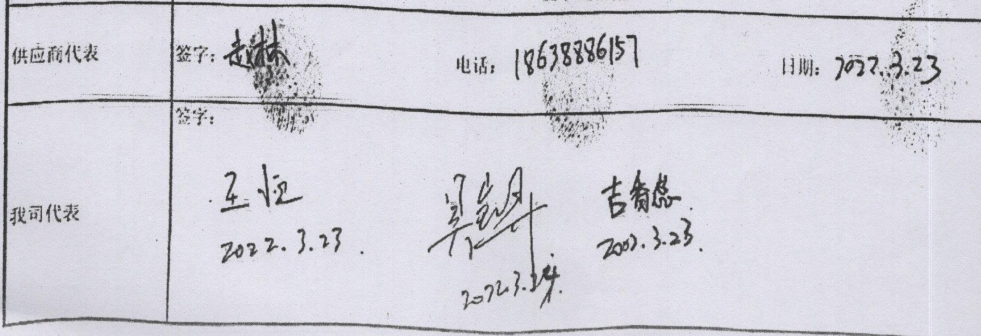 供应商代表 签字：赵林 电话：18638886157 日期：2022.3.23
签字：
我司代表
王恒 吉香慈
2022.3.23. 2022.3.24. 2022.3.23.